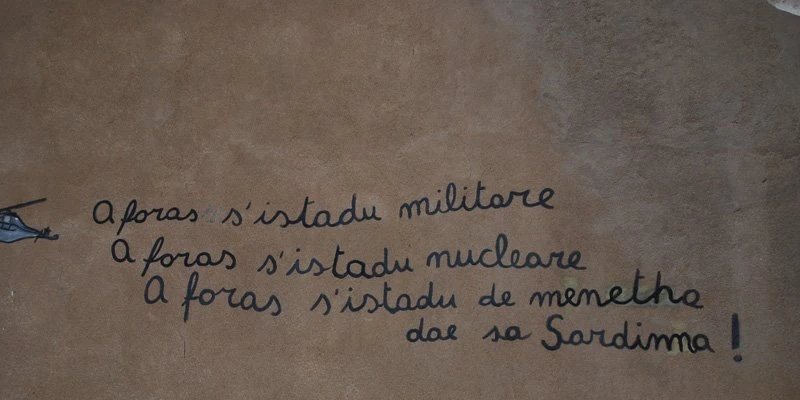 A foras s'istadu militare
A foras s'istadu nucleare
A foras s'istadu de menetha
dae sa Sardinna!